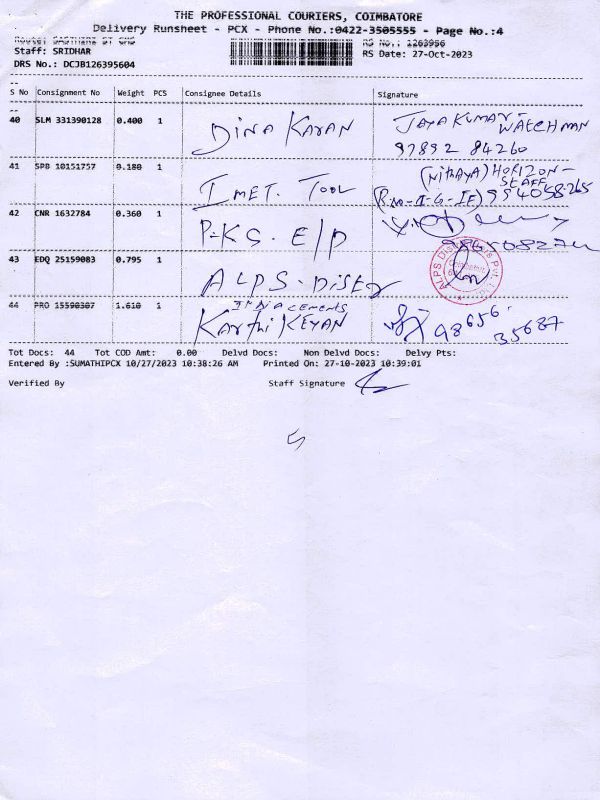 THE PROFESSIONAL COURIERS, COIMBATORE
Delivery Runsheet - PCX - Phone No.:0422-3505555 - Page No.:4
RS No.: 1263956
Staff: SRIDHAR RS Date: 27-Oct-2023
DRS No.: DCJB126395604
S No Consignment No Weight PCS Consignee Details Signature
40 SLM 331390128 0.400 1 DINA KARAN JAYA KUMAR - WATCHMAN
97892 84260
41 SPB 10151757 0.180 1 IMET. TOOL (NITHAYA) HORIZON - STAFF
42 CNR 1632784 0.360 1 P-KS. E/P
43 EDQ 25159083 0.795 1 ALPS-DISTER
44 PRO 15590307 1.610 1 KARTHI KEYAN 98656 35687
Tot Docs: 44 Tot COD Amt: 0.00 Delvd Docs: Non Delvd Docs: Delvy Pts:
Entered By :SUMATHIPCX 10/27/2023 10:38:26 AM Printed On: 27-10-2023 10:39:01
Verified By Staff Signature